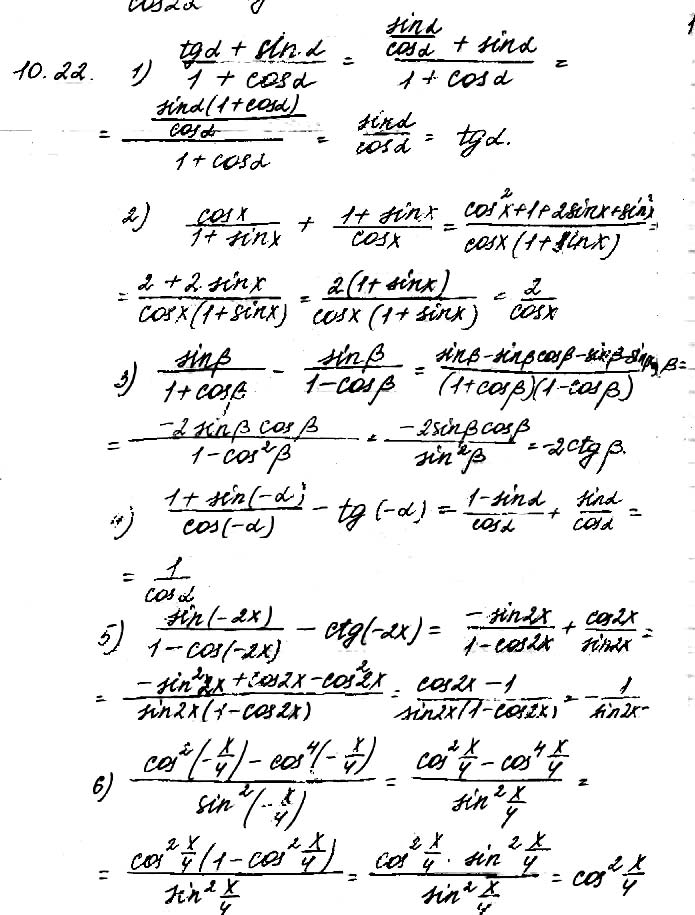 cos2α
10.22. 1) (tgα + sin.α)/(1 + cosα) = (sinα/cosα + sinα)/(1 + cosα) =
= (sinα(1+cosα)/cosα)/(1+cosα) = sinα/cosα = tgα.
2) cosx/(1+sinx) + (1+sinx)/cosx = (cos²x+1+2sinx+sin²x)/(cosx(1+sinx)) =
= (2+2.sinx)/(cosx(1+sinx)) = 2(1+sinx)/(cosx(1+sinx)) = 2/cosx
3) sinβ/(1+cosβ) - sinβ/(1-cosβ) = (sinβ-sinβcosβ-sinβ-sinβcosβ)/((1+cosβ)(1-cosβ)) =
= -2sinβcosβ/(1-cos²β) = -2sinβcosβ/sin²β = -2ctgβ.
4) (1+sin(-α))/cos(-α) - tg(-α) = (1-sinα)/cosα + sinα/cosα =
= 1/cosα
5) sin(-2x)/(1-cos(-2x)) - ctg(-2x) = -sin2x/(1-cos2x) + cos2x/sin2x =
= (-sin²2x+cos2x-cos²2x)/(sin2x(1-cos2x)) = (cos2x-1)/(sin2x(1-cos2x)) = -1/sin2x
6) (cos²(-x/4)-cos⁴(-x/4))/sin²(-x/4) = (cos²x/4-cos⁴x/4)/sin²x/4 =
= cos²x/4(1-cos²x/4)/sin²x/4 = (cos²x/4 · sin²x/4)/sin²x/4 = cos²x/4